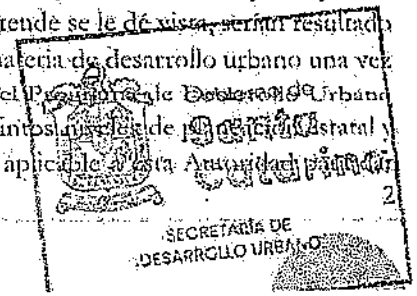 tende se le dé vista, serían resultado
materia de desarrollo urbano una vez
el Programa de Desarrollo Urbano
niveles de planeación Estatal y
aplicable a esta Autoridad
2
SECRETARÍA DE
DESARROLLO URBANO